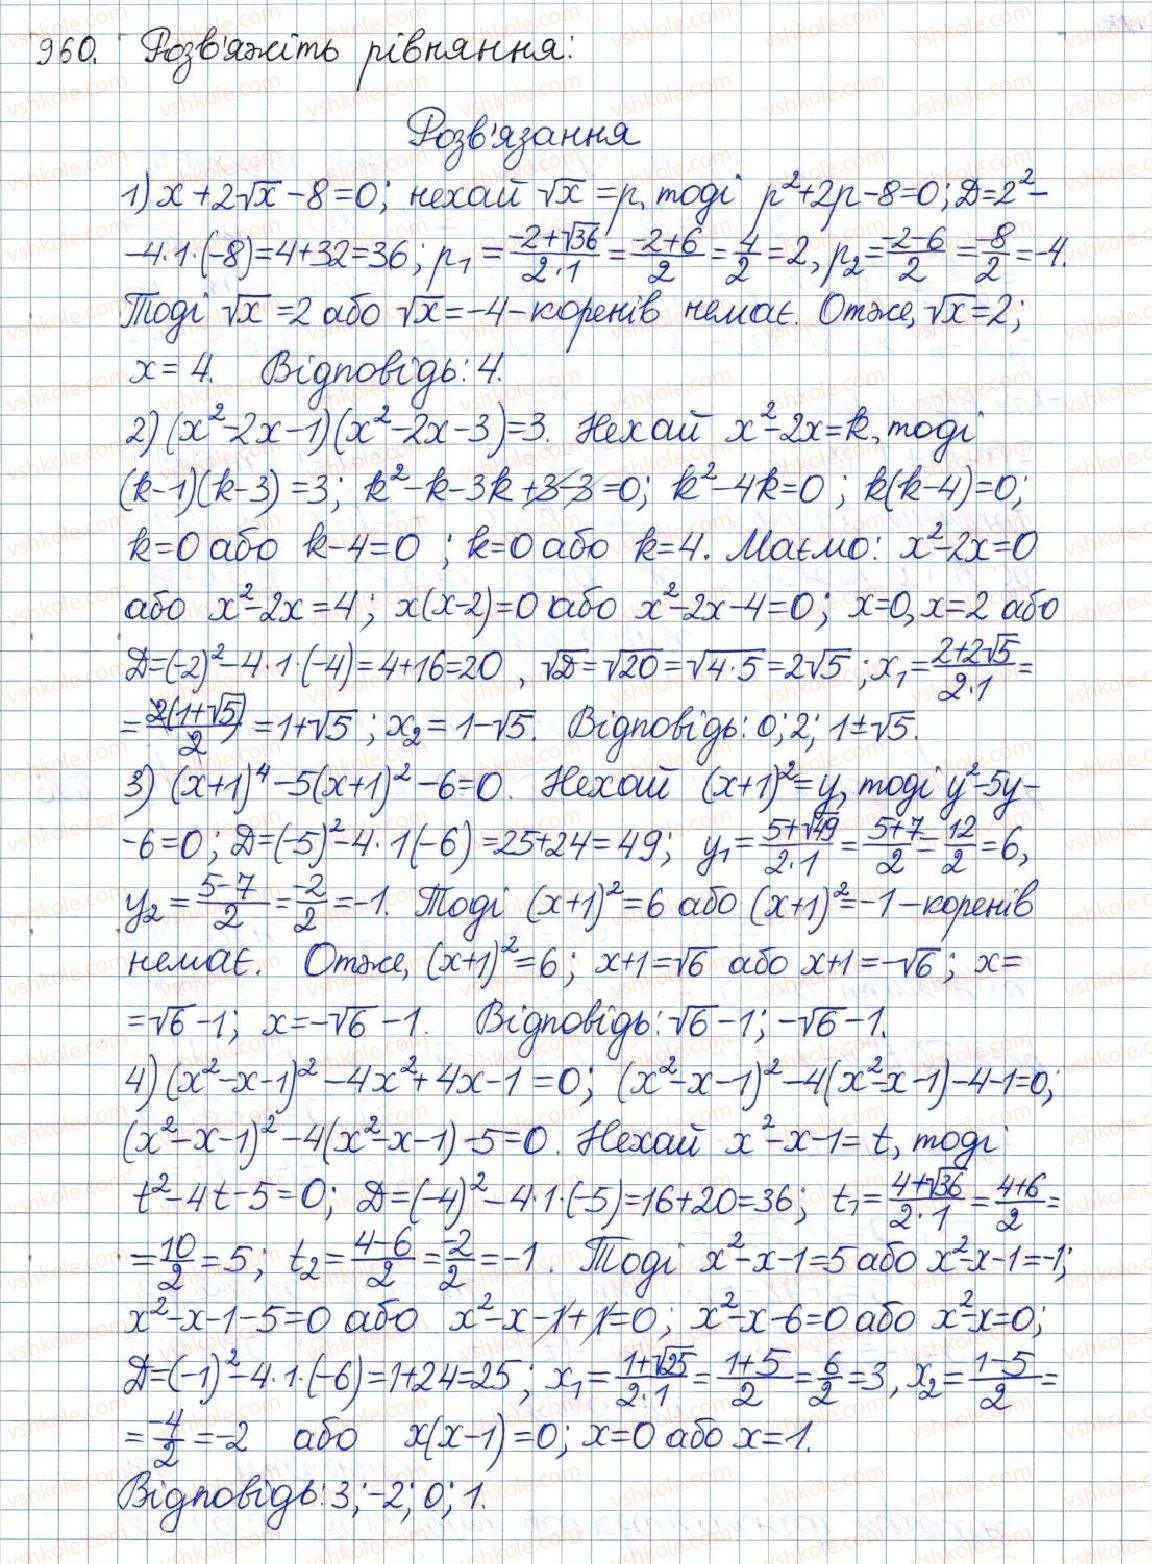 960. Розв'яжіть рівняння:
Розв'язання
1) x+2√x-8=0; нехай √x=p, тоді p²+2p-8=0; D=2²-
-4·1·(-8)=4+32=36; p₁=(-2+√36)/(2·1)=(-2+6)/2=4/2=2, p₂=(-2-6)/2=-8/2=-4.
Тоді √x=2 або √x=-4-коренів немає. Отже, √x=2;
x=4. Відповідь: 4.
2) (x²-2x-1)(x²-2x-3)=3. Нехай x²-2x=k, тоді
(k-1)(k-3)=3; k²-k-3k+3-3=0; k²-4k=0; k(k-4)=0;
k=0 або k-4=0; k=0 або k=4. Маємо: x²-2x=0
або x²-2x=4; x(x-2)=0 або x²-2x-4=0; x=0, x=2 або
D=(-2)²-4·1·(-4)=4+16=20, √D=√20=√4·5=2√5; x₁=(2+2√5)/(2·1)=
=2(1+√5)/2=1+√5; x₂=1-√5. Відповідь: 0; 2; 1±√5.
3) (x+1)⁴-5(x+1)²-6=0. Нехай (x+1)²=y, тоді y²-5y-
-6=0; D=(-5)²-4·1(-6)=25+24=49; y₁=(5+√49)/(2·1)=(5+7)/2=12/2=6,
y₂=(5-7)/2=-2/2=-1. Тоді (x+1)²=6 або (x+1)²=-1-коренів
немає. Отже, (x+1)²=6; x+1=√6 або x+1=-√6; x=
=√6-1; x=-√6-1. Відповідь: √6-1; -√6-1.
4) (x²-x-1)²-4x²+4x-1=0; (x²-x-1)²-4(x²-x-1)-4-1=0;
(x²-x-1)²-4(x²-x-1)-5=0. Нехай x²-x-1=t, тоді
t²-4t-5=0; D=(-4)²-4·1·(-5)=16+20=36; t₁=(4+√36)/(2·1)=(4+6)/2=
=10/2=5; t₂=(4-6)/2=-2/2=-1. Тоді x²-x-1=5 або x²-x-1=-1;
x²-x-1-5=0 або x²-x-1+1=0; x²-x-6=0 або x²-x=0;
D=(-1)²-4·1·(-6)=1+24=25; x₁=(1+√25)/(2·1)=(1+5)/2=6/2=3, x₂=(1-5)/2=
=-4/2=-2 або x(x-1)=0; x=0 або x=1.
Відповідь: 3; -2; 0; 1.